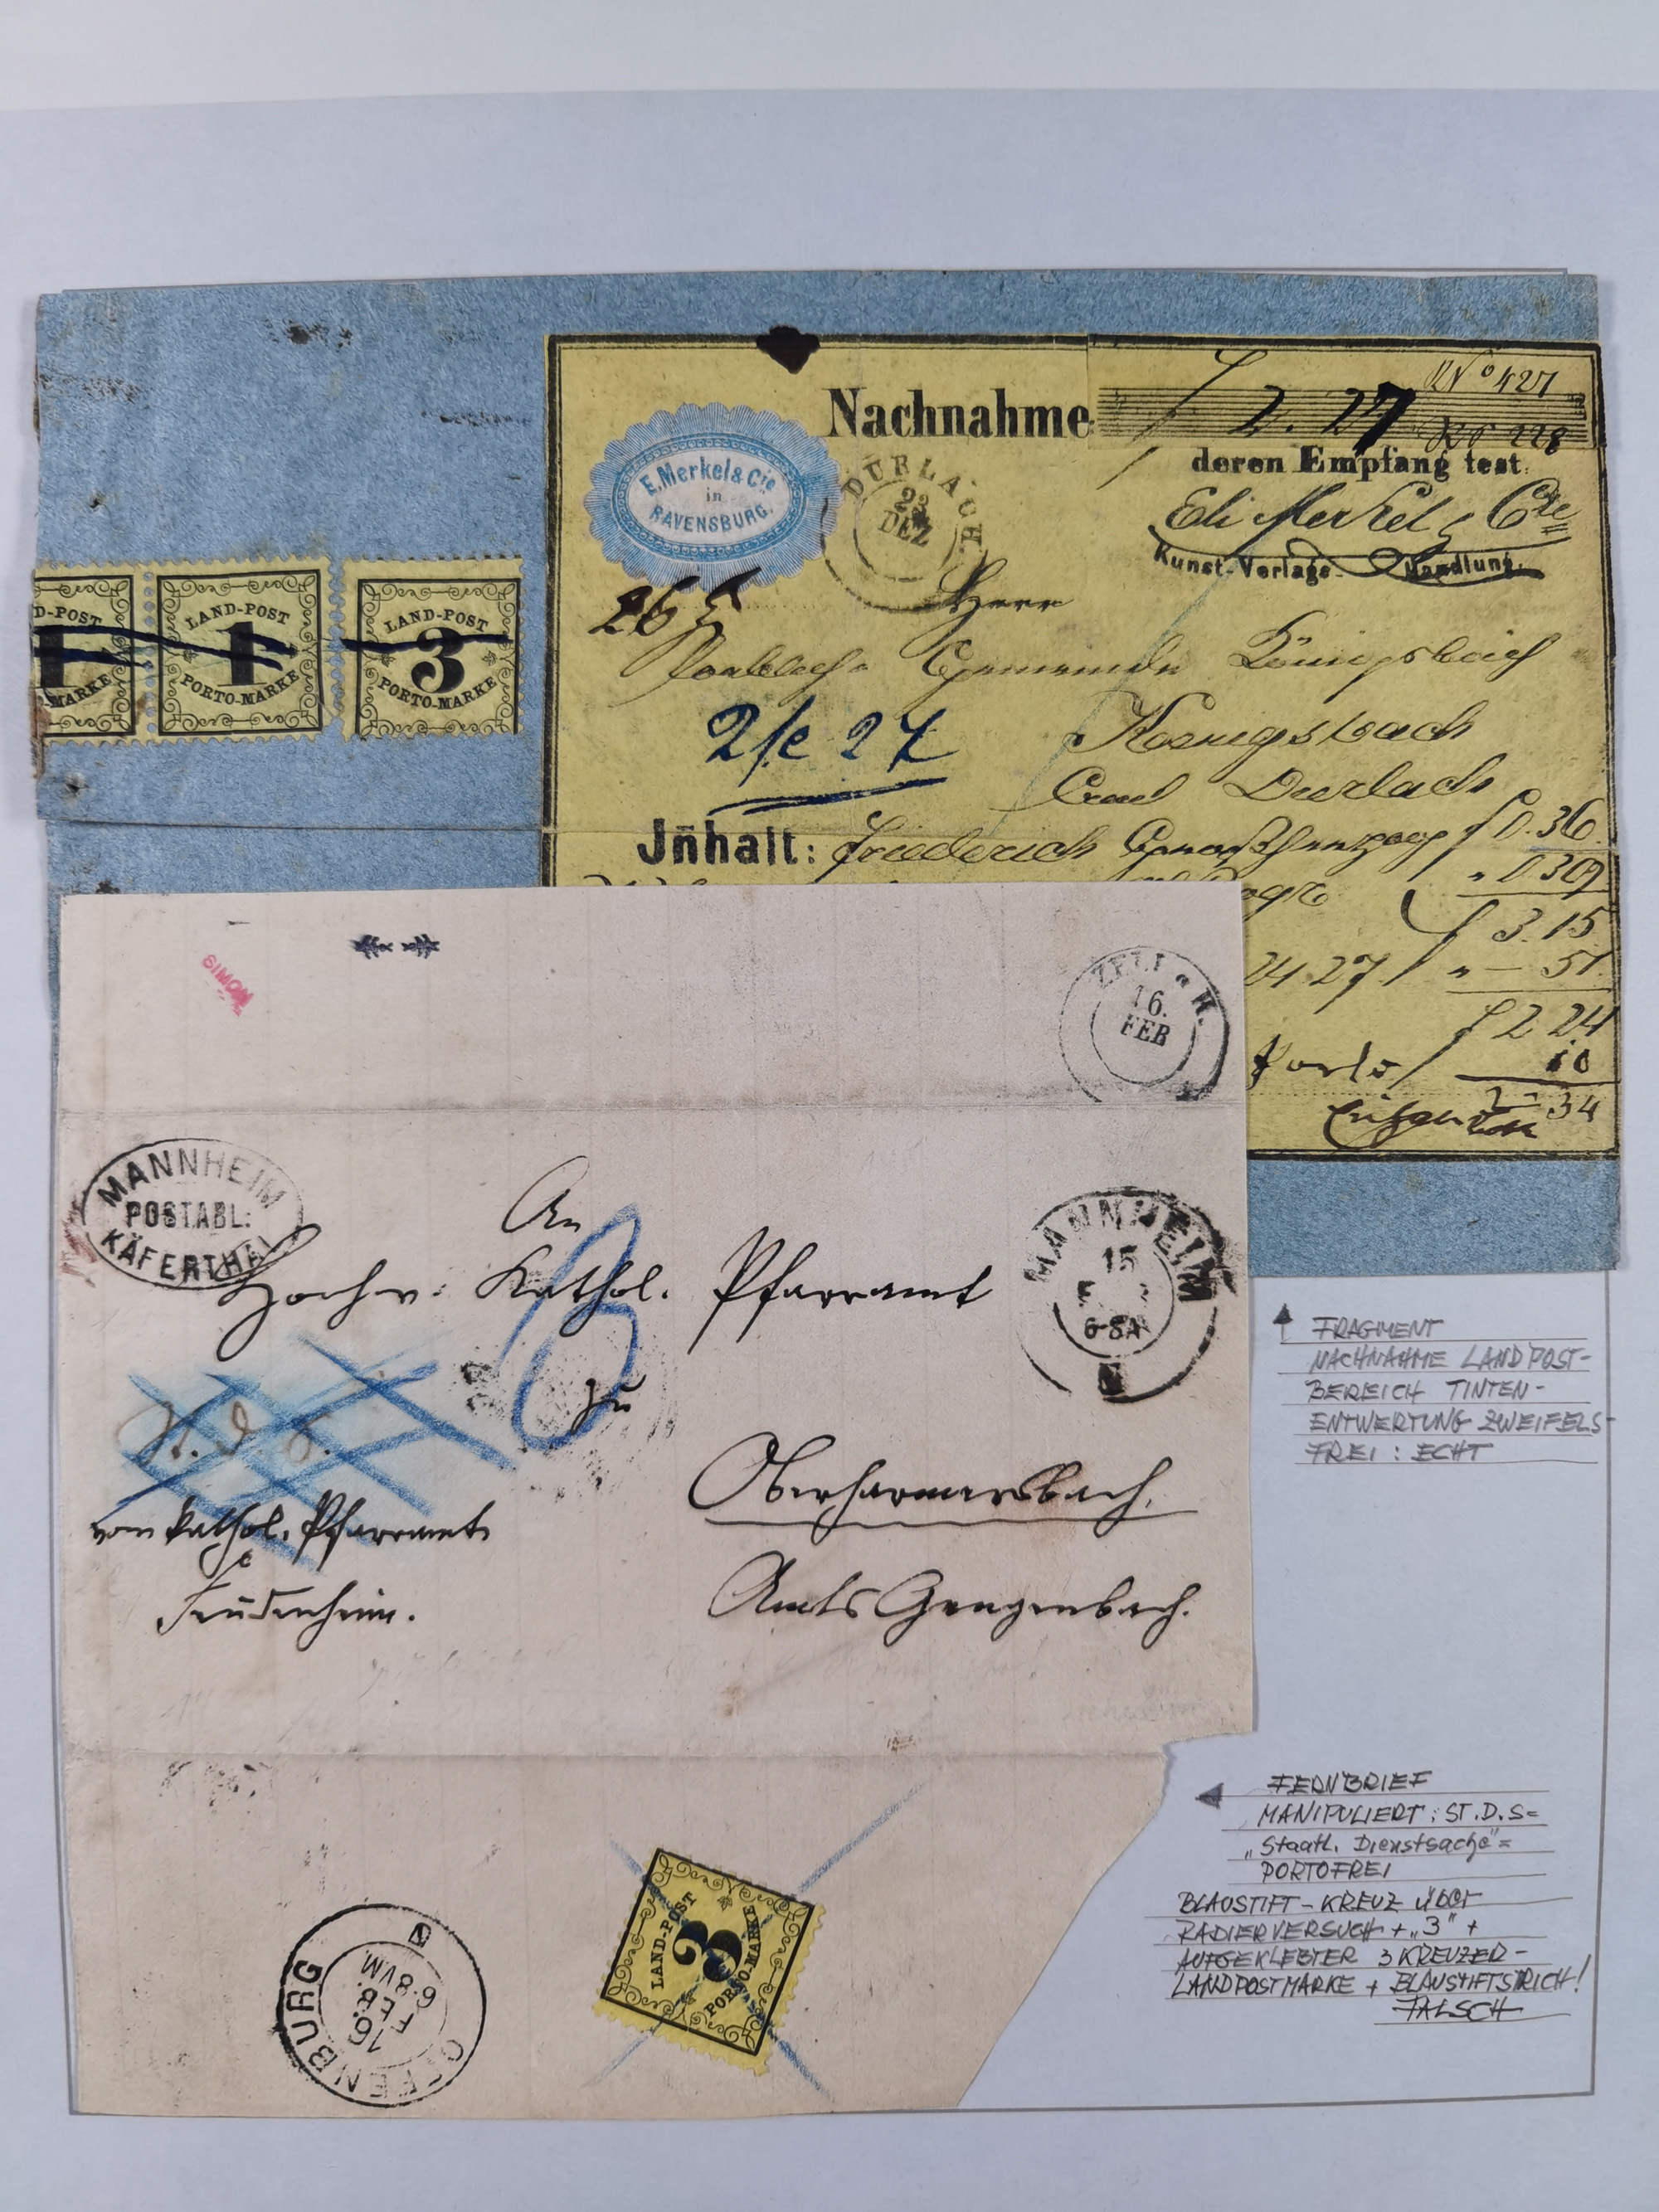 Nachnahme
f 2. 27
No 427
No 228
deren Empfang test.
Eli Merkel & Cie
Kunst-Verlags-Handlung.
E. Merkel & Cie
in
RAVENSBURG.
DURLACH.
23
DEZ
Herr
Gemeinde Königsbach
Koenigsbach
Durlach
2/c 27
Jnhalt: Friederich
f 0.36
" 0.309
f 3.15
24.27 f " — 51
f 2 24
Porto f 10
2 - 34
D-POST
1
MARKE
LAND-POST
1
PORTO-MARKE
LAND-POST
3
PORTO-MARKE
SIMON
ZELL a H.
16.
FEB
MANNHEIM
POSTABL:
KÄFERTHAL
MANNHEIM
15
6-8A
An
Hochw. Kathol. Pfarramt
3
zu
St. d. S.
Oberharmersbach.
vom kathol. Pfarramte
Feudenheim.
Amts Gengenbach.
OFFENBURG
16.
FEB.
6-8VM
LAND-POST
3
PORTO-MARKE
FRAGMENT
NACHNAHME LANDPOST-
BEREICH TINTEN-
ENTWERTUNG ZWEIFELS-
FREI : ECHT
FERNBRIEF
MANIPULIERT: ST.D.S=
„Staatl. Dienstsache"=
PORTOFREI
BLAUSTIFT-KREUZ über
RADIERVERSUCH + „3" +
AUFGEKLEBTER 3 KREUZER-
LANDPOSTMARKE + BLAUSTIFTSTRICH!
FALSCH